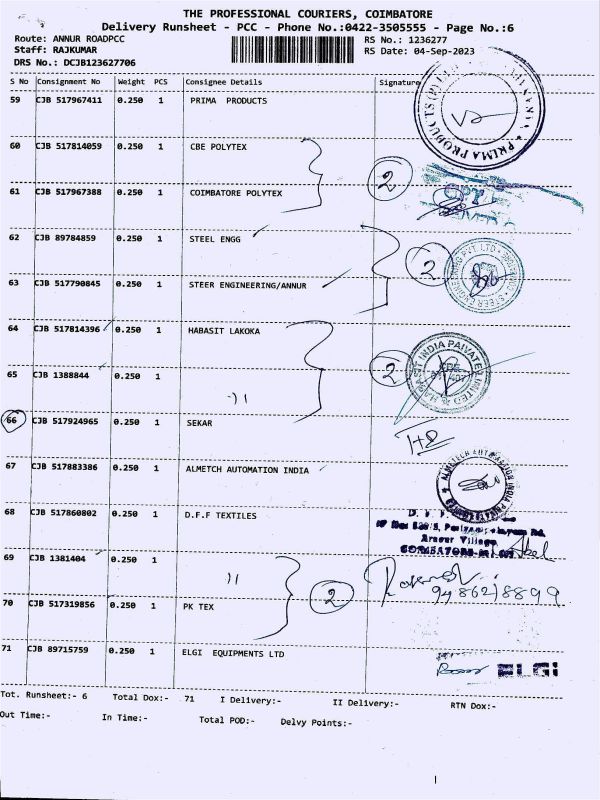 THE PROFESSIONAL COURIERS, COIMBATORE
Delivery Runsheet - PCC - Phone No.:0422-3505555 - Page No.:6
Route: ANNUR ROADPCC RS No.: 1236277
Staff: RAJKUMAR RS Date: 04-Sep-2023
DRS No.: DCJB123627706
S No Consignment No Weight PCS Consignee Details Signature
59 CJB 517967411 0.250 1 PRIMA PRODUCTS
PRIMA PRODUCTS (P)
60 CJB 517814059 0.250 1 CBE POLYTEX
2
61 CJB 517967388 0.250 1 COIMBATORE POLYTEX
62 CJB 89784859 0.250 1 STEEL ENGG
2
STEER ENGINEERING PVT. LTD
63 CJB 517790845 0.250 1 STEER ENGINEERING/ANNUR
64 CJB 517814396 0.250 1 HABASIT LAKOKA
HABASIT INDIA PAIVATE LIMITED
65 CJB 1388844 0.250 1 〃
2
66 CJB 517924965 0.250 1 SEKAR
67 CJB 517883386 0.250 1 ALMETCH AUTOMATION INDIA
68 CJB 517860802 0.250 1 D.F.F TEXTILES
Arasur Village
COIMBATORE
69 CJB 1381404 0.250 1 〃
2
9486218899
70 CJB 517319856 0.250 1 PK TEX
71 CJB 89715759 0.250 1 ELGI EQUIPMENTS LTD
ELGI
Tot. Runsheet:- 6 Total Dox:- 71 I Delivery:- II Delivery:- RTN Dox:-
Out Time:- In Time:- Total POD:- Delvy Points:-